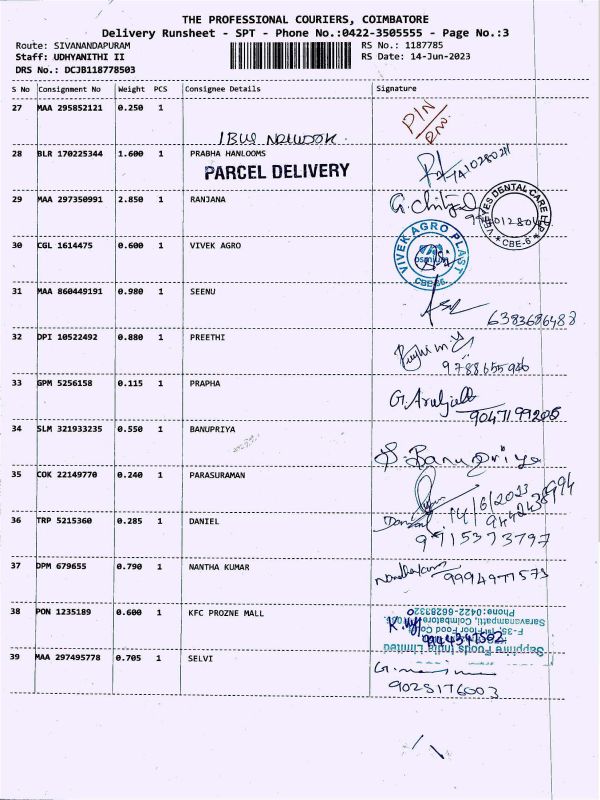 THE PROFESSIONAL COURIERS, COIMBATORE
Delivery Runsheet - SPT - Phone No.:0422-3505555 - Page No.:3
Route: SIVANANDAPURAM RS No.: 1187785
Staff: UDHYANITHI II RS Date: 14-Jun-2023
DRS No.: DCJB118778503
S No Consignment No Weight PCS Consignee Details Signature
27 MAA 295852121 0.250 1
28 BLR 170225344 1.600 1 PRABHA HANLOOMS
PARCEL DELIVERY
29 MAA 297350991 2.850 1 RANJANA
VEYES DENTAL CARE LLP
* CBE-6 *
30 CGL 1614475 0.600 1 VIVEK AGRO
VIVEK AGRO PLAST
31 MAA 860449191 0.980 1 SEENU
6383686488
32 DPI 10522492 0.880 1 PREETHI
9788655946
33 GPM 5256158 0.115 1 PRAPHA
9047199205
34 SLM 321933235 0.550 1 BANUPRIYA
S. Banupriya
35 COK 22149770 0.240 1 PARASURAMAN
14/6/2023
36 TRP 5215360 0.285 1 DANIEL
9715373797
37 DPM 679655 0.790 1 NANTHA KUMAR
9994977573
38 PON 1235189 0.600 1 KFC PROZNE MALL
Sapphire Foods India Limited
Saravanampatti, Coimbatore
Phone:0422-6628332
39 MAA 297495778 0.705 1 SELVI
9025176003